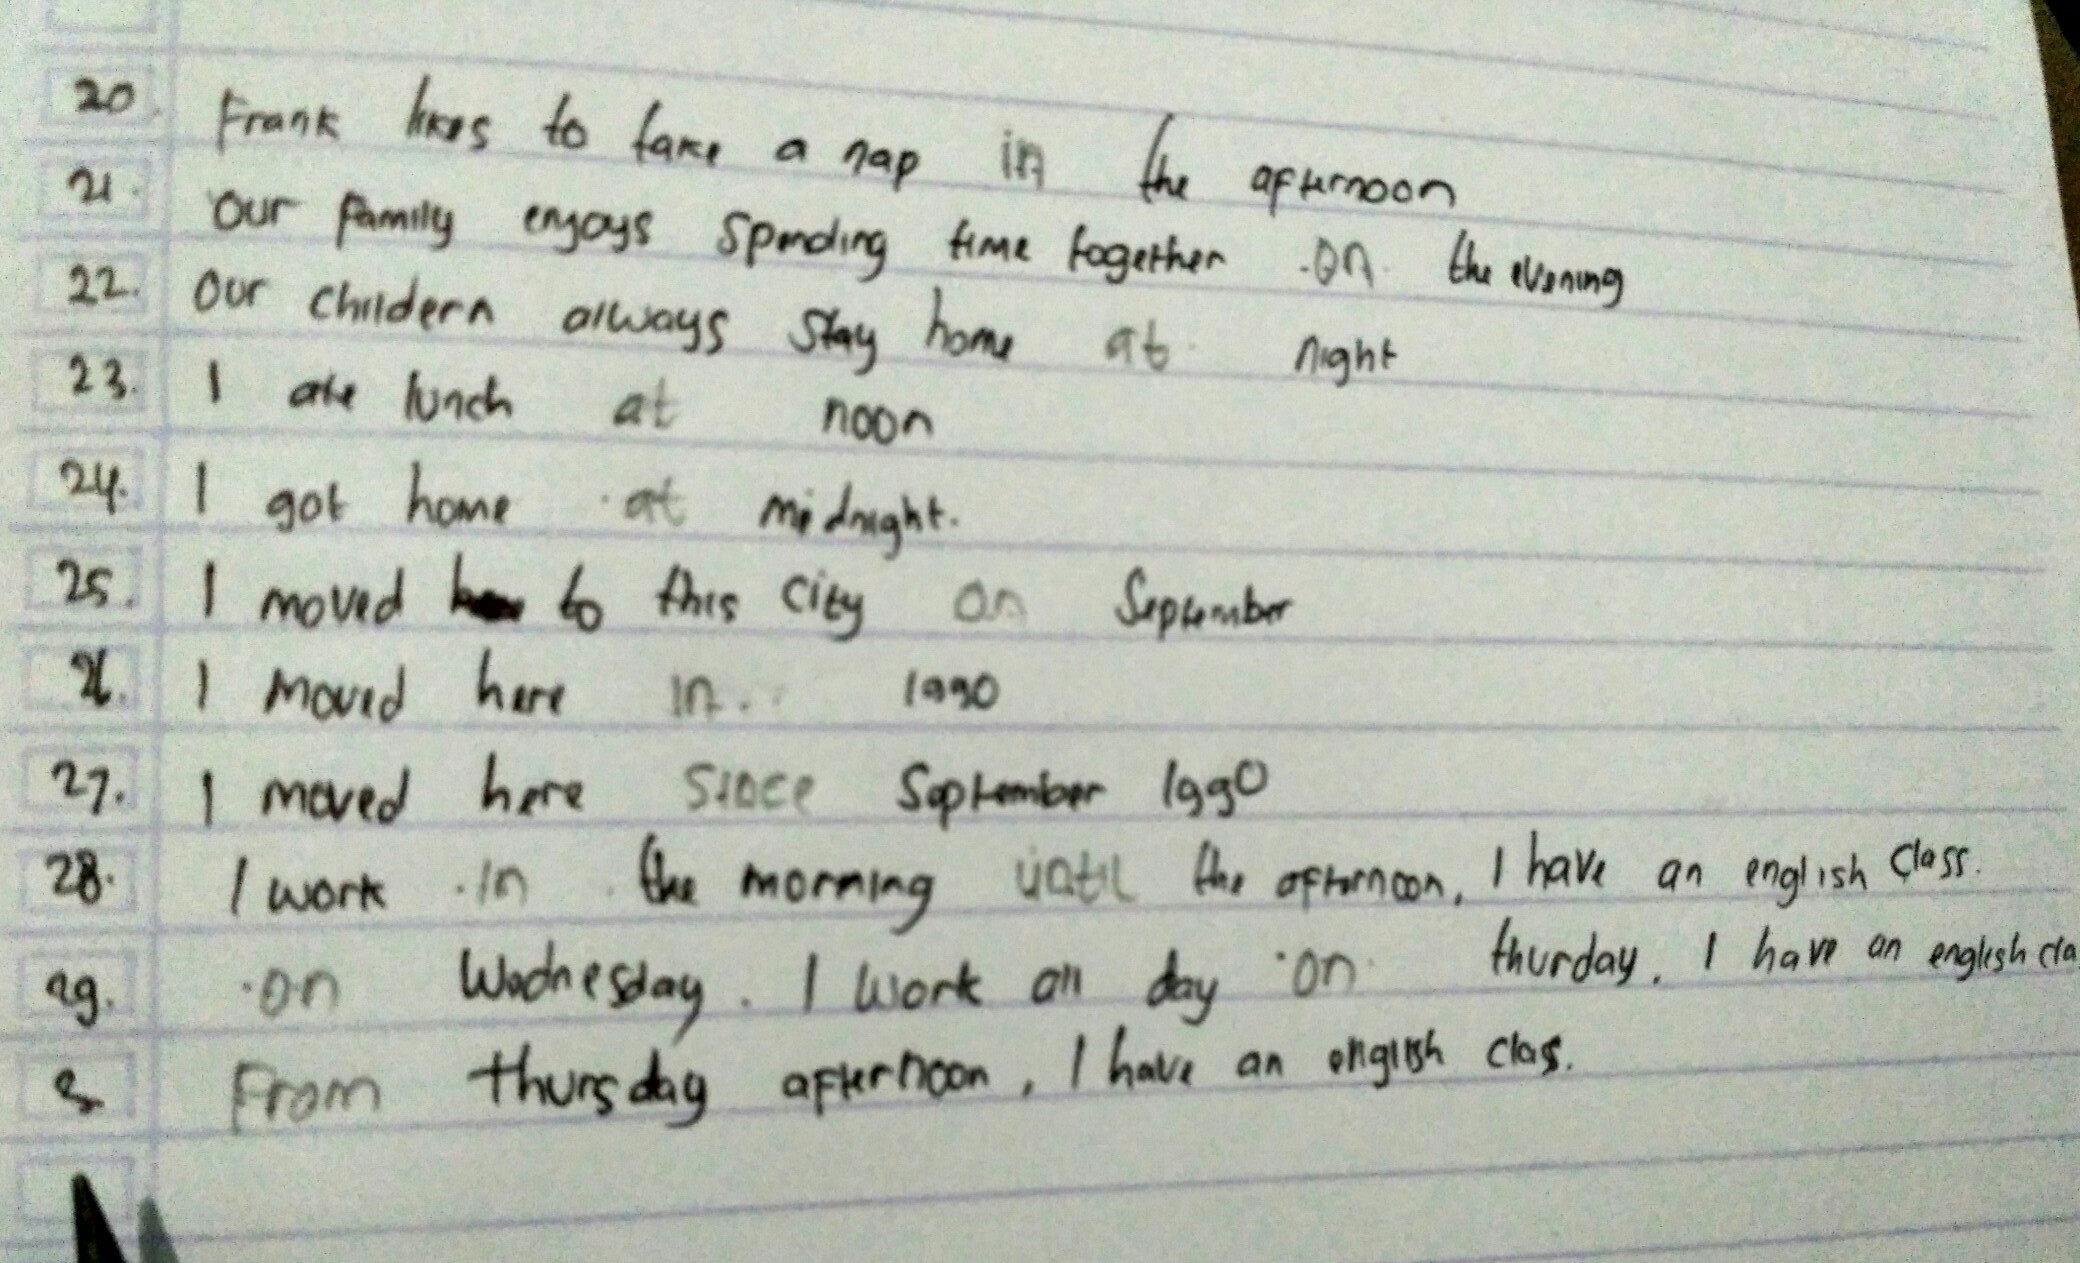 20. Frank likes to take a nap in the afternoon
21. Our family enjoys Spending time together on the evening
22. Our childern always stay home at night
23. I ate lunch at noon
24. I got home at midnight.
25. I moved to this city on September
26. I moved here in 1990
27. I moved here since September 1990
28. I work in the morning until the afternoon, I have an english class.
29. on Wednesday. I work all day on thurday. I have an english cla
From thursday afternoon, I have an english class.